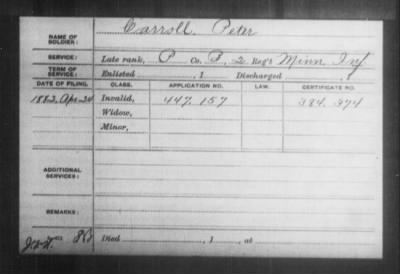 NAME OF SOLDIER: Carroll, Peter
SERVICE: Late rank, P Co. B, 2 Reg't Minn Inf
TERM OF SERVICE: Enlisted , 1 Discharged , 1
DATE OF FILING. CLASS. APPLICATION NO. LAW. CERTIFICATE NO.
1882, Apr. 24 Invalid, 447,157 384,374
Widow,
Minor,
ADDITIONAL SERVICES:
REMARKS:
Died , 1 , at